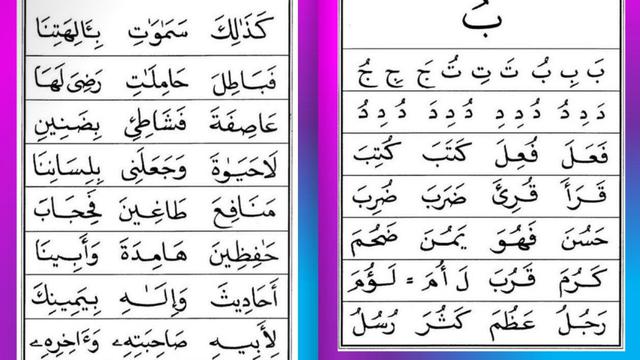 بُ
بَ بِ بُ تَ تِ تُ جَ جِ جُ
دَ دِ دُ دُ دِ دِ دُ دِ دَ دُ دِ دُ
فَعَلَ فُعِلَ كَتَبَ كُتِبَ
قَرَأَ قُرِئَ ضَرَبَ ضُرِبَ
حَسُنَ فَهُوَ يَمُنَ ضَخُمَ
كَرُمَ قَرُبَ لَ أُمَ = لَؤُمَ
رَجُلُ عَظُمَ كَثُرَ رُسُلُ
كَذَٰلِكَ سَمَٰوَٰتِ بِـَٔالِهَتِنَا
فَبَاطِلَ حَامِلَٰتِ رَضِىَ لَهَا
عَاصِفَةَ فَشَاطِئِ بِضَنِينِ
لَاحَيَوٰةَ وَجَعَلَنِى بِلِسَانِنَا
مَنَافِعَ طَاغِينَ فَحِجَابَ
حَٰفِظِينَ هَامِدَةَ وَأَبِينَا
أَحَادِيثَ وَإِلَٰهِ بِيَمِينِكَ
لِأَبِيهِ صَاحِبَتِهِۦ وَءَاخِرِهِۦ